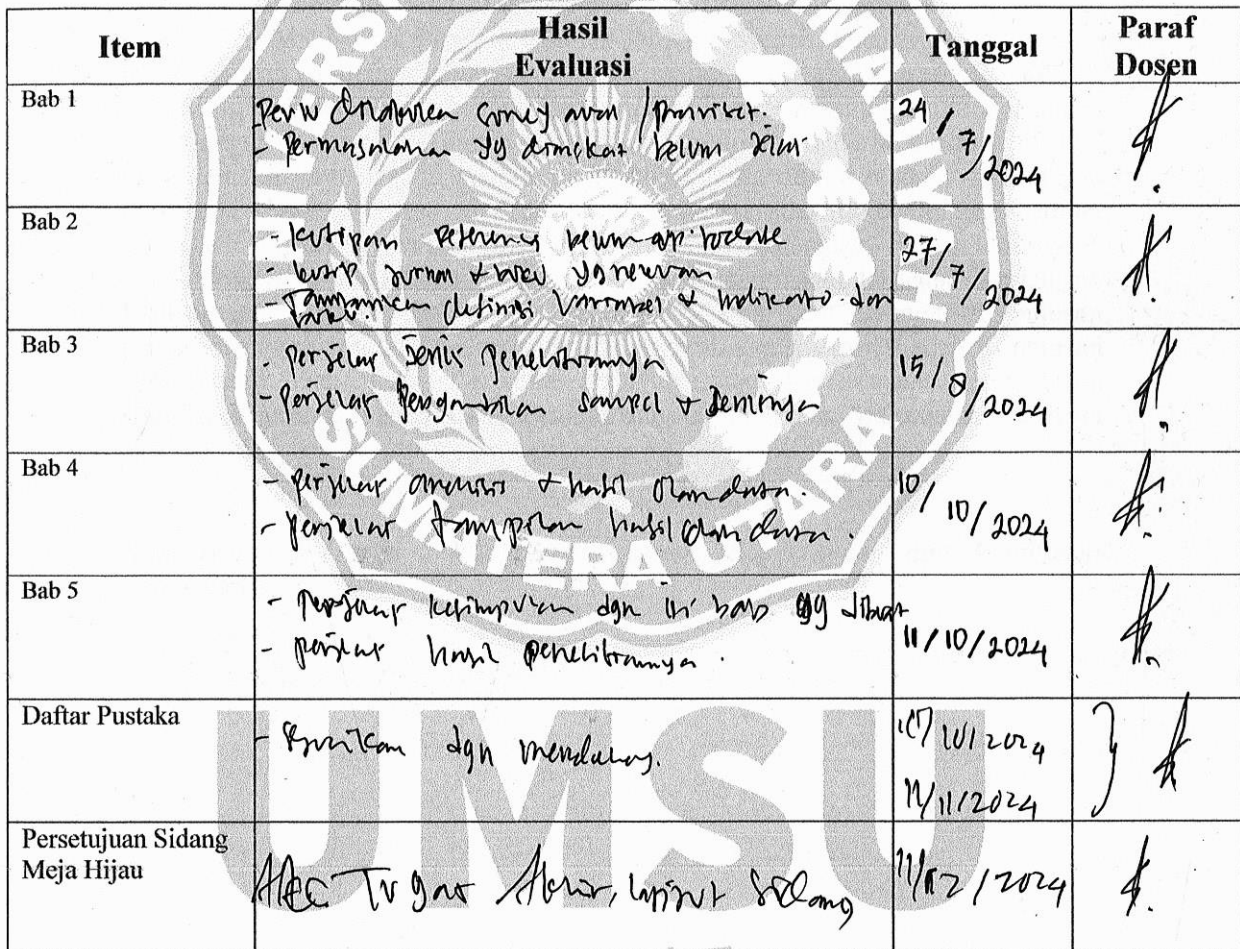 Item
Hasil
Evaluasi
Tanggal
Paraf
Dosen
Bab 1
Perlu dilakukan survey awal /prariset.
- Permasalahan yg diangkat belum jelas
24/7/2024
Bab 2
- kutipan referensi belum up todate
- kutip jurnal & buku yg relevan
- Tambahkan definisi variabel & indikator dan
27/7/2024
Bab 3
- perjelas jenis penelitiannya
- perjelas pengambilan sampel &
15/8/2024
Bab 4
- perjelas analisis & hasil olah data.
- perjelas tampilan hasil olah data.
10/10/2024
Bab 5
- perjelas kesimpulan dgn isi bab yg dibuat
- perjelas hasil penelitiannya.
11/10/2024
Daftar Pustaka
- Sesuaikan dgn mendeley.
10/2024
11/2024
Persetujuan Sidang
Meja Hijau
Acc Tugas Akhir, lanjut Sidang
/12/2024
UNIVERSITAS MUHAMMADIYAH
SUMATERA UTARA
UMSU